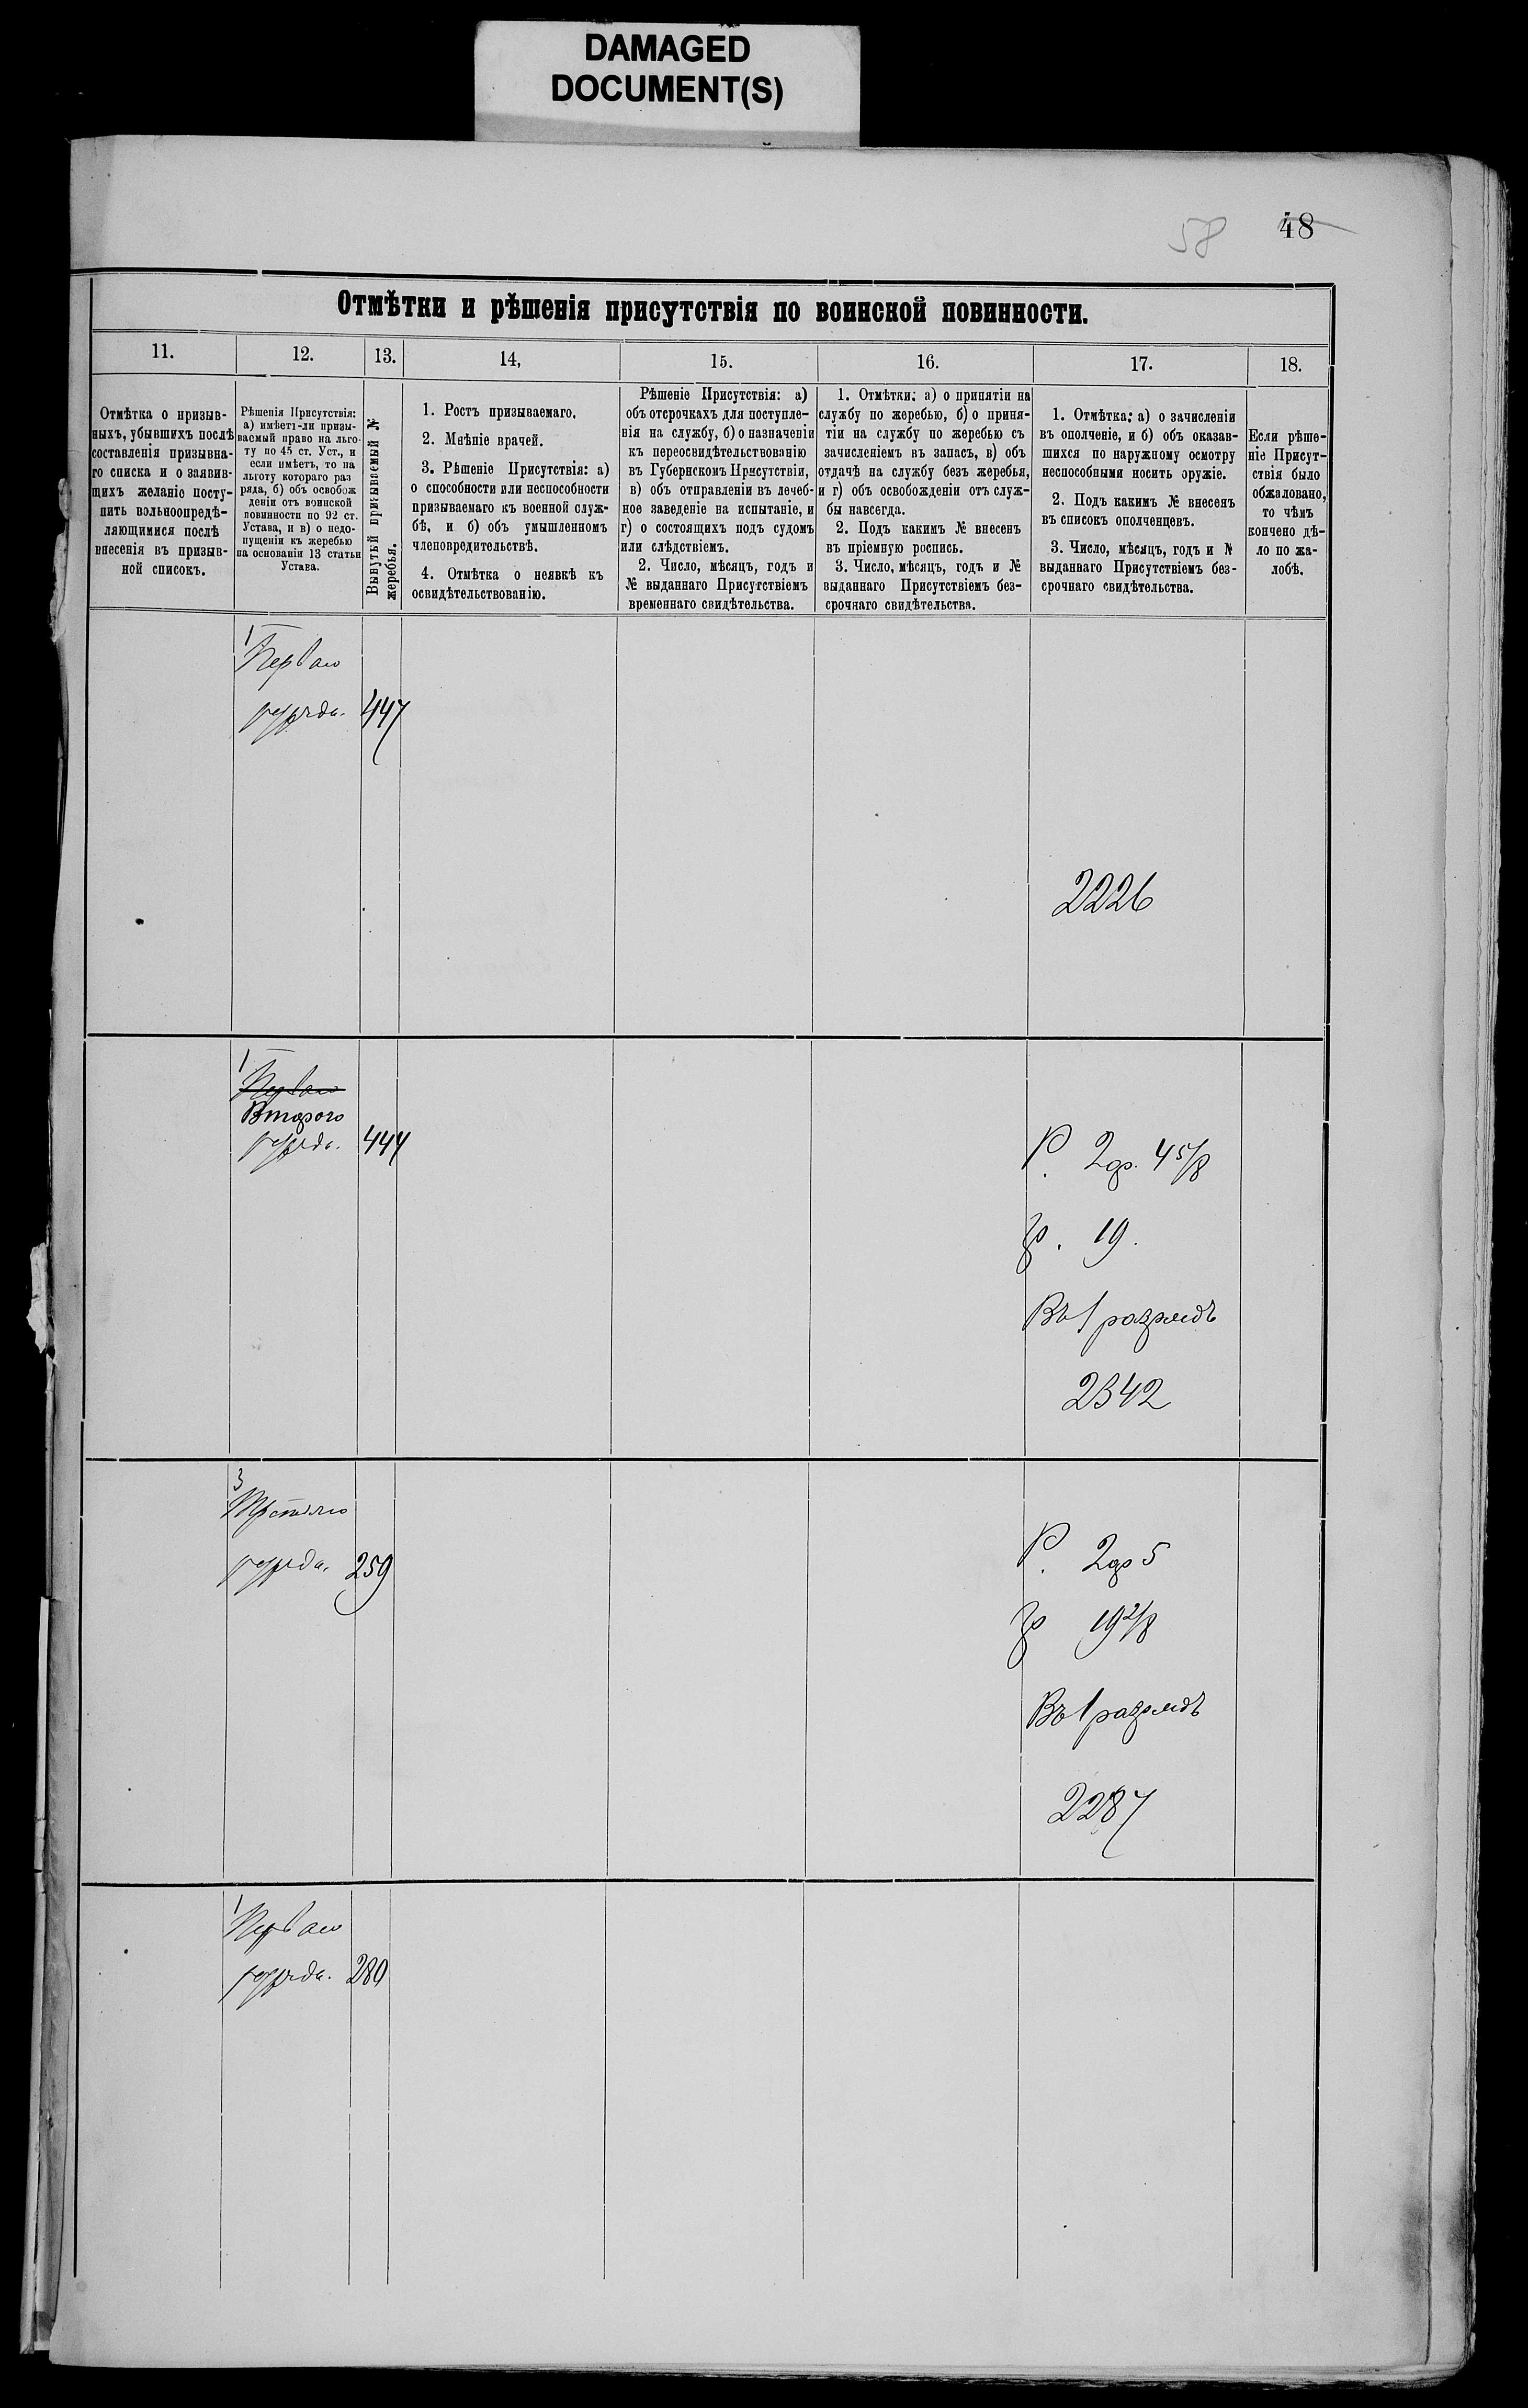 DAMAGED
DOCUMENT(S)
58 48
Отмѣтки и рѣшенія присутствія по воинской повинности.
11.
12.
13.
14,
15.
16.
17.
18.
Отмѣтка о призыв-
ныхъ, убывшихъ послѣ
составленія призывна-
го списка и о заявив-
щихъ желаніе посту-
пить вольноопредѣ-
ляющимися послѣ
внесенія въ призыв-
ной списокъ.
Рѣшенія Присутствія:
а) имѣетъ-ли призы-
ваемый право на льго-
ту по 45 ст. Уст., и
если имѣетъ, то на
льготу котораго раз
ряда, б) объ освобож
деніи отъ воинской
повинности по 92 ст.
Устава, и в) о недо-
пущеніи къ жеребью
на основаніи 13 статьи
Устава.
Вынутый призываемый №
жеребья.
1. Ростъ призываемаго.
2. Мнѣніе врачей.
3. Рѣшеніе Присутствія: а)
о способности или неспособности
призываемаго къ военной служ-
бѣ, и б) объ умышленномъ
членовредительствѣ.
4. Отмѣтка о неявкѣ къ
освидѣтельствованію.
Рѣшеніе Присутствія: а)
объ отсрочкахъ для поступле-
нія на службу, б) о назначеніи
къ переосвидѣтельствованію
въ Губернскомъ Присутствіи,
в) объ отправленіи въ лечеб-
ное заведеніе на испытаніе, и
г) о состоящихъ подъ судомъ
или слѣдствіемъ.
2. Число, мѣсяцъ, годъ и
№ выданнаго Присутствіемъ
временнаго свидѣтельства.
1. Отмѣтки: а) о принятіи на
службу по жеребью, б) о приня-
тіи на службу по жеребью съ
зачисленіемъ въ запасъ, в) объ
отдачѣ на службу безъ жеребья,
и г) объ освобожденіи отъ служ-
бы навсегда.
2. Подъ какимъ № внесенъ
въ пріемную роспись.
3. Число, мѣсяцъ, годъ и №
выданнаго Присутствіемъ без-
срочнаго свидѣтельства.
1. Отмѣтка: а) о зачисленіи
въ ополченіе, и б) объ оказав-
шихся по наружному осмотру
неспособными носить оружіе.
2. Подъ какимъ № внесенъ
въ списокъ ополченцевъ.
3. Число, мѣсяцъ, годъ и №
выданнаго Присутствіемъ без-
срочнаго свидѣтельства.
Если рѣше-
ніе Присут-
ствія было
обжаловано,
то чѣмъ
кончено дѣ-
ло по жа-
лобѣ.
1
Перваго
разряда. 447
2226
1
Перваго
Второго
разряда. 444
Р. 2ар. 4 5/8
гр. 19.
Въ 1 разрядъ
2342
3
Третьяго
разряда. 259
Р. 2ар 5
гр 19 2/8
Въ 1 разрядъ
2287
1
Перваго
разряда. 280